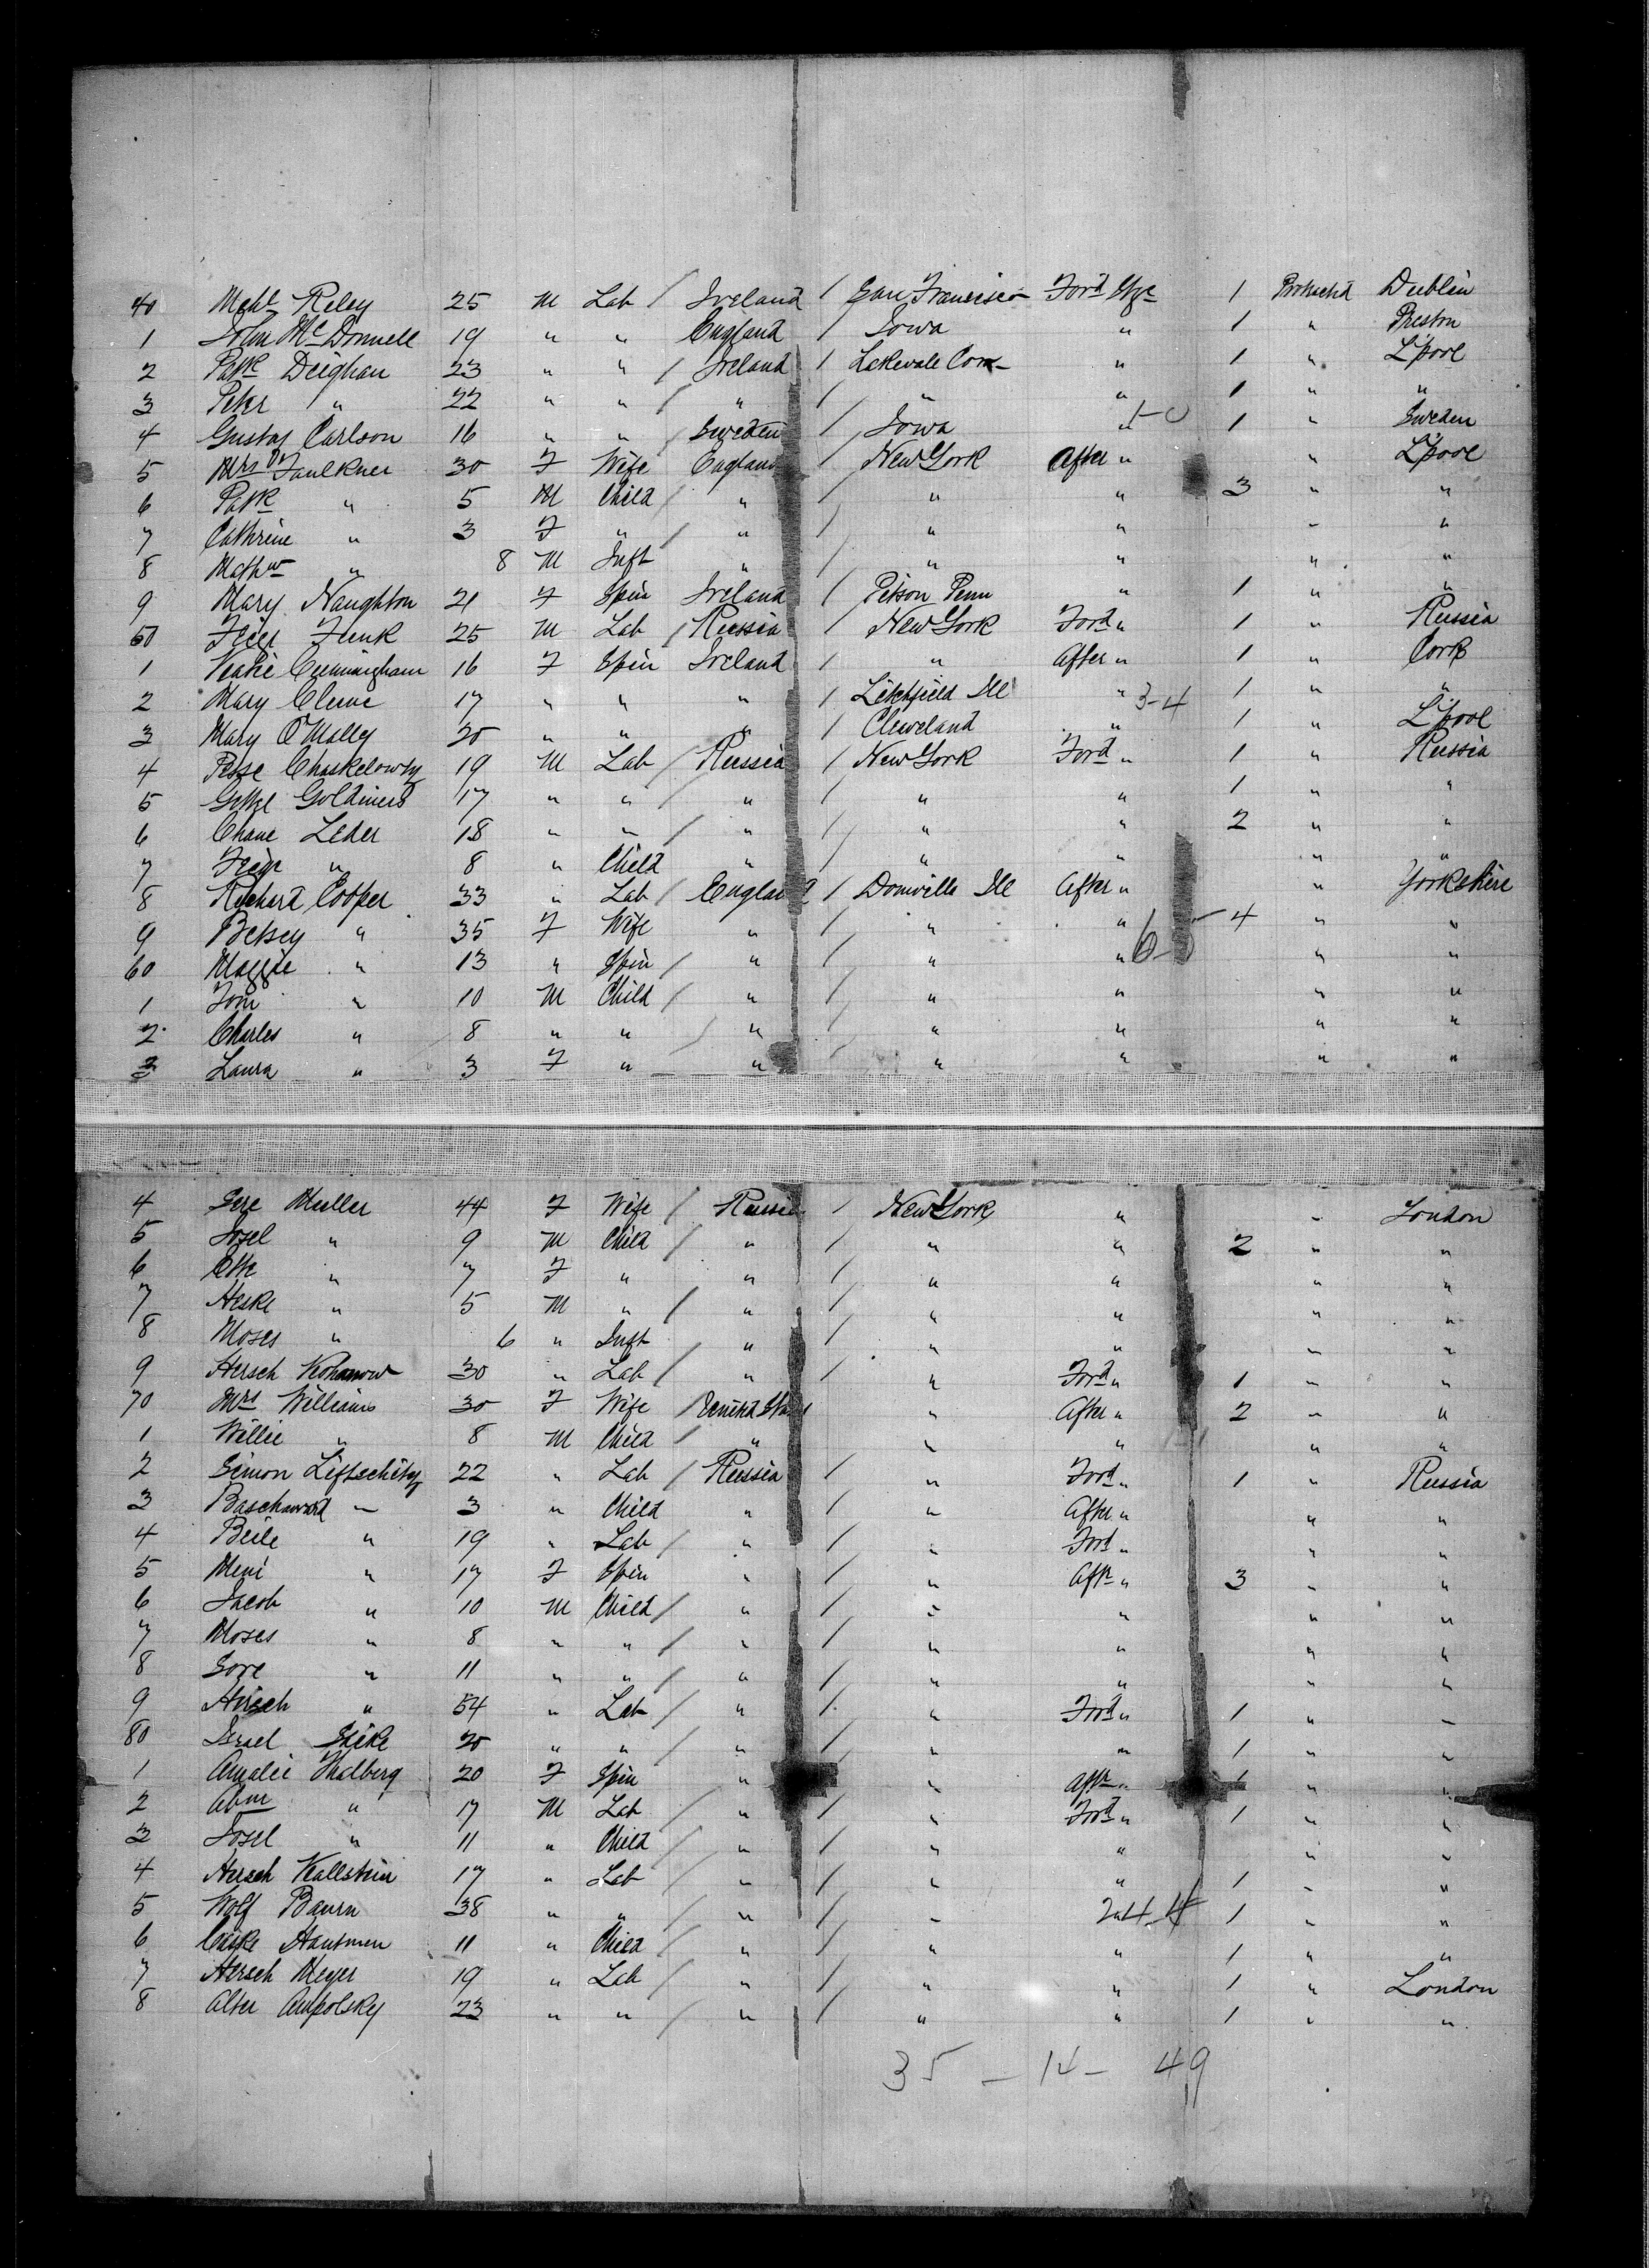 40 Mchl Riley 25 M Lab / Ireland / San Francisco Ford Stge 1 Protracted Dublin
1 John McDonnell 19 " " England / Iowa " 1 " Preston
2 Patk Deighan 23 " " / Ireland / Lakevale Con " 1 " L'pool
3 Peter " 22 " " / " / " " 1 " "
4 Gustaf Carlson 16 " " Sweden / Iowa " 1-0 1 " Sweden
5 Mrs Faulkner 30 F Wife England / New York After " " L'pool
6 Patk " 5 M Child / " / " " 3 " "
7 Cathrine " 3 F " / " / " " " "
8 Mathw " 8 M Inft " / " " " "
9 Mary Naughton 21 F Spin Ireland / Penn " 1 " "
50 Funk 25 M Lab / Russia / New York Ford " 1 " Russia
1 Katie Cunningham 16 F Spin Ireland / " After " 1 " Cork
2 Mary Clune 17 " " " / Litchfield Ill " 3-4 1 " "
3 Mary O'Malley 20 " " " / Cleaveland " 1 " L'pool
4 Pesse Chaskelowsy 19 M Lab / Russia / New York Ford " 1 " Russia
5 Goldiners 17 " " / " / " " 1 " "
6 Chane Leder 18 " " / " / " " 2 " "
7 Feige " 8 " Child " / " " " "
8 Richard Cooper 33 " Lab / England / Donville Ill After " " Yorkshire
9 Betsey " 35 F Wife " / " " 4 " "
60 Maggie " 13 " Spin / " / " " 6-0 " "
1 Tom " 10 M Child / " / " " " "
2 Charles " 8 " " / " / " " " "
3 Laura " 3 F " " / " " " "
4 Sere Muller 44 F Wife / Russia / New York " " London
5 Josel " 9 M Child / " / " " 2 " "
6 Ette " 7 F " " / " " " "
7 Heske " 5 M " / " / " " " "
8 Moses " 6 " Inft " / " " " "
9 Hersch Kohanow 30 " Lab / " / " Ford " 1 " "
70 Mrs Williams 30 F Wife / United States " After " 2 " "
1 Willie " 8 M Child / " " " " "
2 Simon Liftschitz 22 " Lab / Russia / " Ford " 1 " Russia
3 " 3 " Child " / " After " " "
4 Beile " 19 " Lab / " / " Ford " " "
5 Meni " 17 F Spin " / " Aft " 3 " "
6 Jacob " 10 M Child / " / " " " "
7 Moses " 8 " " / " / " " " "
8 Sore " 11 " " / " / " " " "
9 Hirsch " 54 " Lab / " / " Ford " 1 " "
80 Israel Seike 20 " " / " / " " 1 " "
1 Amalie Thalberg 20 F Spin " " Aft " 1 " "
2 Abm " 17 M Lab / " / " Ford " 1 " "
3 Josel " 11 " Child " / " " " "
4 Hersch Kallstein 17 " Lab / " / " " 1 " "
5 Wolf Baurn 38 " " / " / " 24-4 1 " "
6 Hausmen 11 " Child / " / " " 1 " "
7 Hersch Meyer 19 " Lab / " / " " 1 " London
8 Alter Ampolsky 23 " " / " / " " 1 " "
35 - 14 - 49